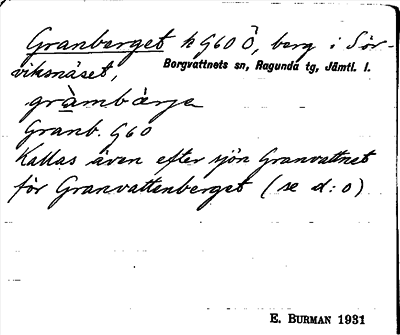 Granberget h G60 Ö, berg i Sör-
viksnäset,
Borgvattnets sn, Ragunda tg, Jämtl. l.
gràmbàrje
Granb. G60
Kallas även efter sjön Granvattnet
för Granvattenberget (se d:o)
E. BURMAN 1931